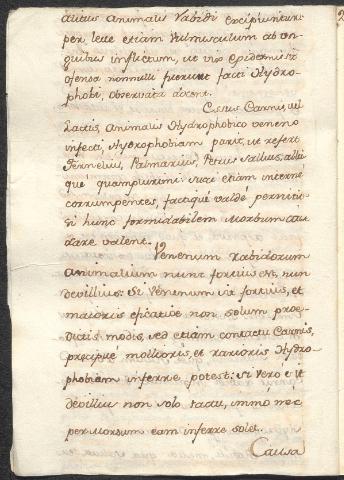 alitus animalis rabidi excipiuntur:
per leve etiam Vulnusculum ab un-
guibus inflictum, ut vix epidermis sit
ofensa nonnulli fuerunt facti Hydro-
phobi, observata docent.
Esus Carnis, vel
Lactis, animalis Hydrophobico veneno
infecti, Hydrophobiam parit, ut refert
Fernelius, Palmarius, Petrus Salius, alii
quê quamplurimi: suci etiam interne
corrumpentes, factiquê valdê pernitio-
si hunc formidabilem Morbum cau-
dare valent.
Venenum rabidorum
animalium nunc fortius est, nun
devillius: Si Venenum sit fortius, et
maioris eficatiae non solum prae-
dictis modis, sed etiam contactu Carnis,
precipue mollioris, et rarioris Hydro-
phobiam inferre potest: si vero e it
devillius non solo tactu, immò nec
per Morsum eam inferre solet.
Causa